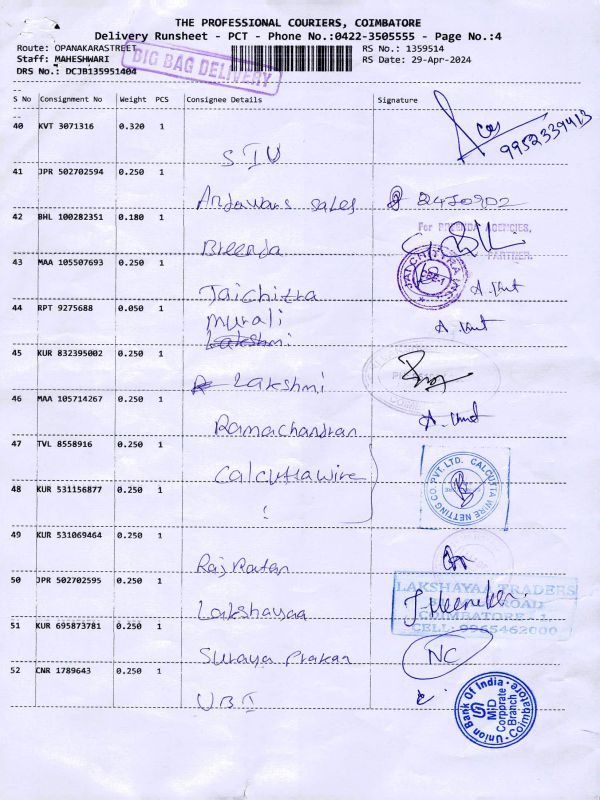 THE PROFESSIONAL COURIERS, COIMBATORE
Delivery Runsheet - PCT - Phone No.:0422-3505555 - Page No.:4
Route: OPANAKARASTREET RS No.: 1359514
Staff: MAHESHWARI RS Date: 29-Apr-2024
DRS No.: DCJB135951404
BIG BAG DELIVERY
S No Consignment No Weight PCS Consignee Details Signature
40 KVT 3071316 0.320 1
SIU 9952339413
41 JPR 502702594 0.250 1
sales
42 BHL 100282351 0.180 1
For AGENCIES,
Breenda PARTNER.
43 MAA 105507693 0.250 1
Jaichitra
44 RPT 9275688 0.050 1
Murali
Lakshmi
45 KUR 832395002 0.250 1
Lakshmi
46 MAA 105714267 0.250 1
Ramachandran
47 TVL 8558916 0.250 1
Calcutta wire
CALCUTTA WIRE NETTING CO. PVT. LTD.
48 KUR 531156877 0.250 1
49 KUR 531069464 0.250 1
Raj Ratan
50 JPR 502702595 0.250 1
LAKSHAYAA TRADERS
ROAD
Lakshayaa COIMBATORE - 1.
CELL: 9965462000
51 KUR 695873781 0.250 1
Suraya Prakan NC
52 CNR 1789643 0.250 1
UBI
Union Bank Of India
MID Corporate Branch
Coimbatore